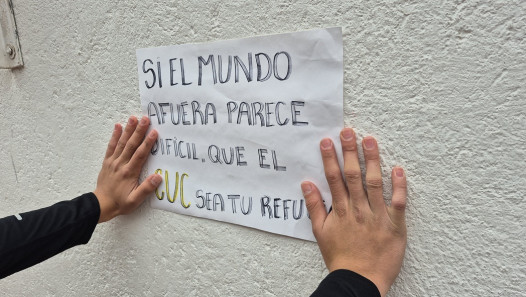 SI EL MUNDO
AFUERA PARECE
DIFÍCIL, QUE EL
CUC SEA TU REFU